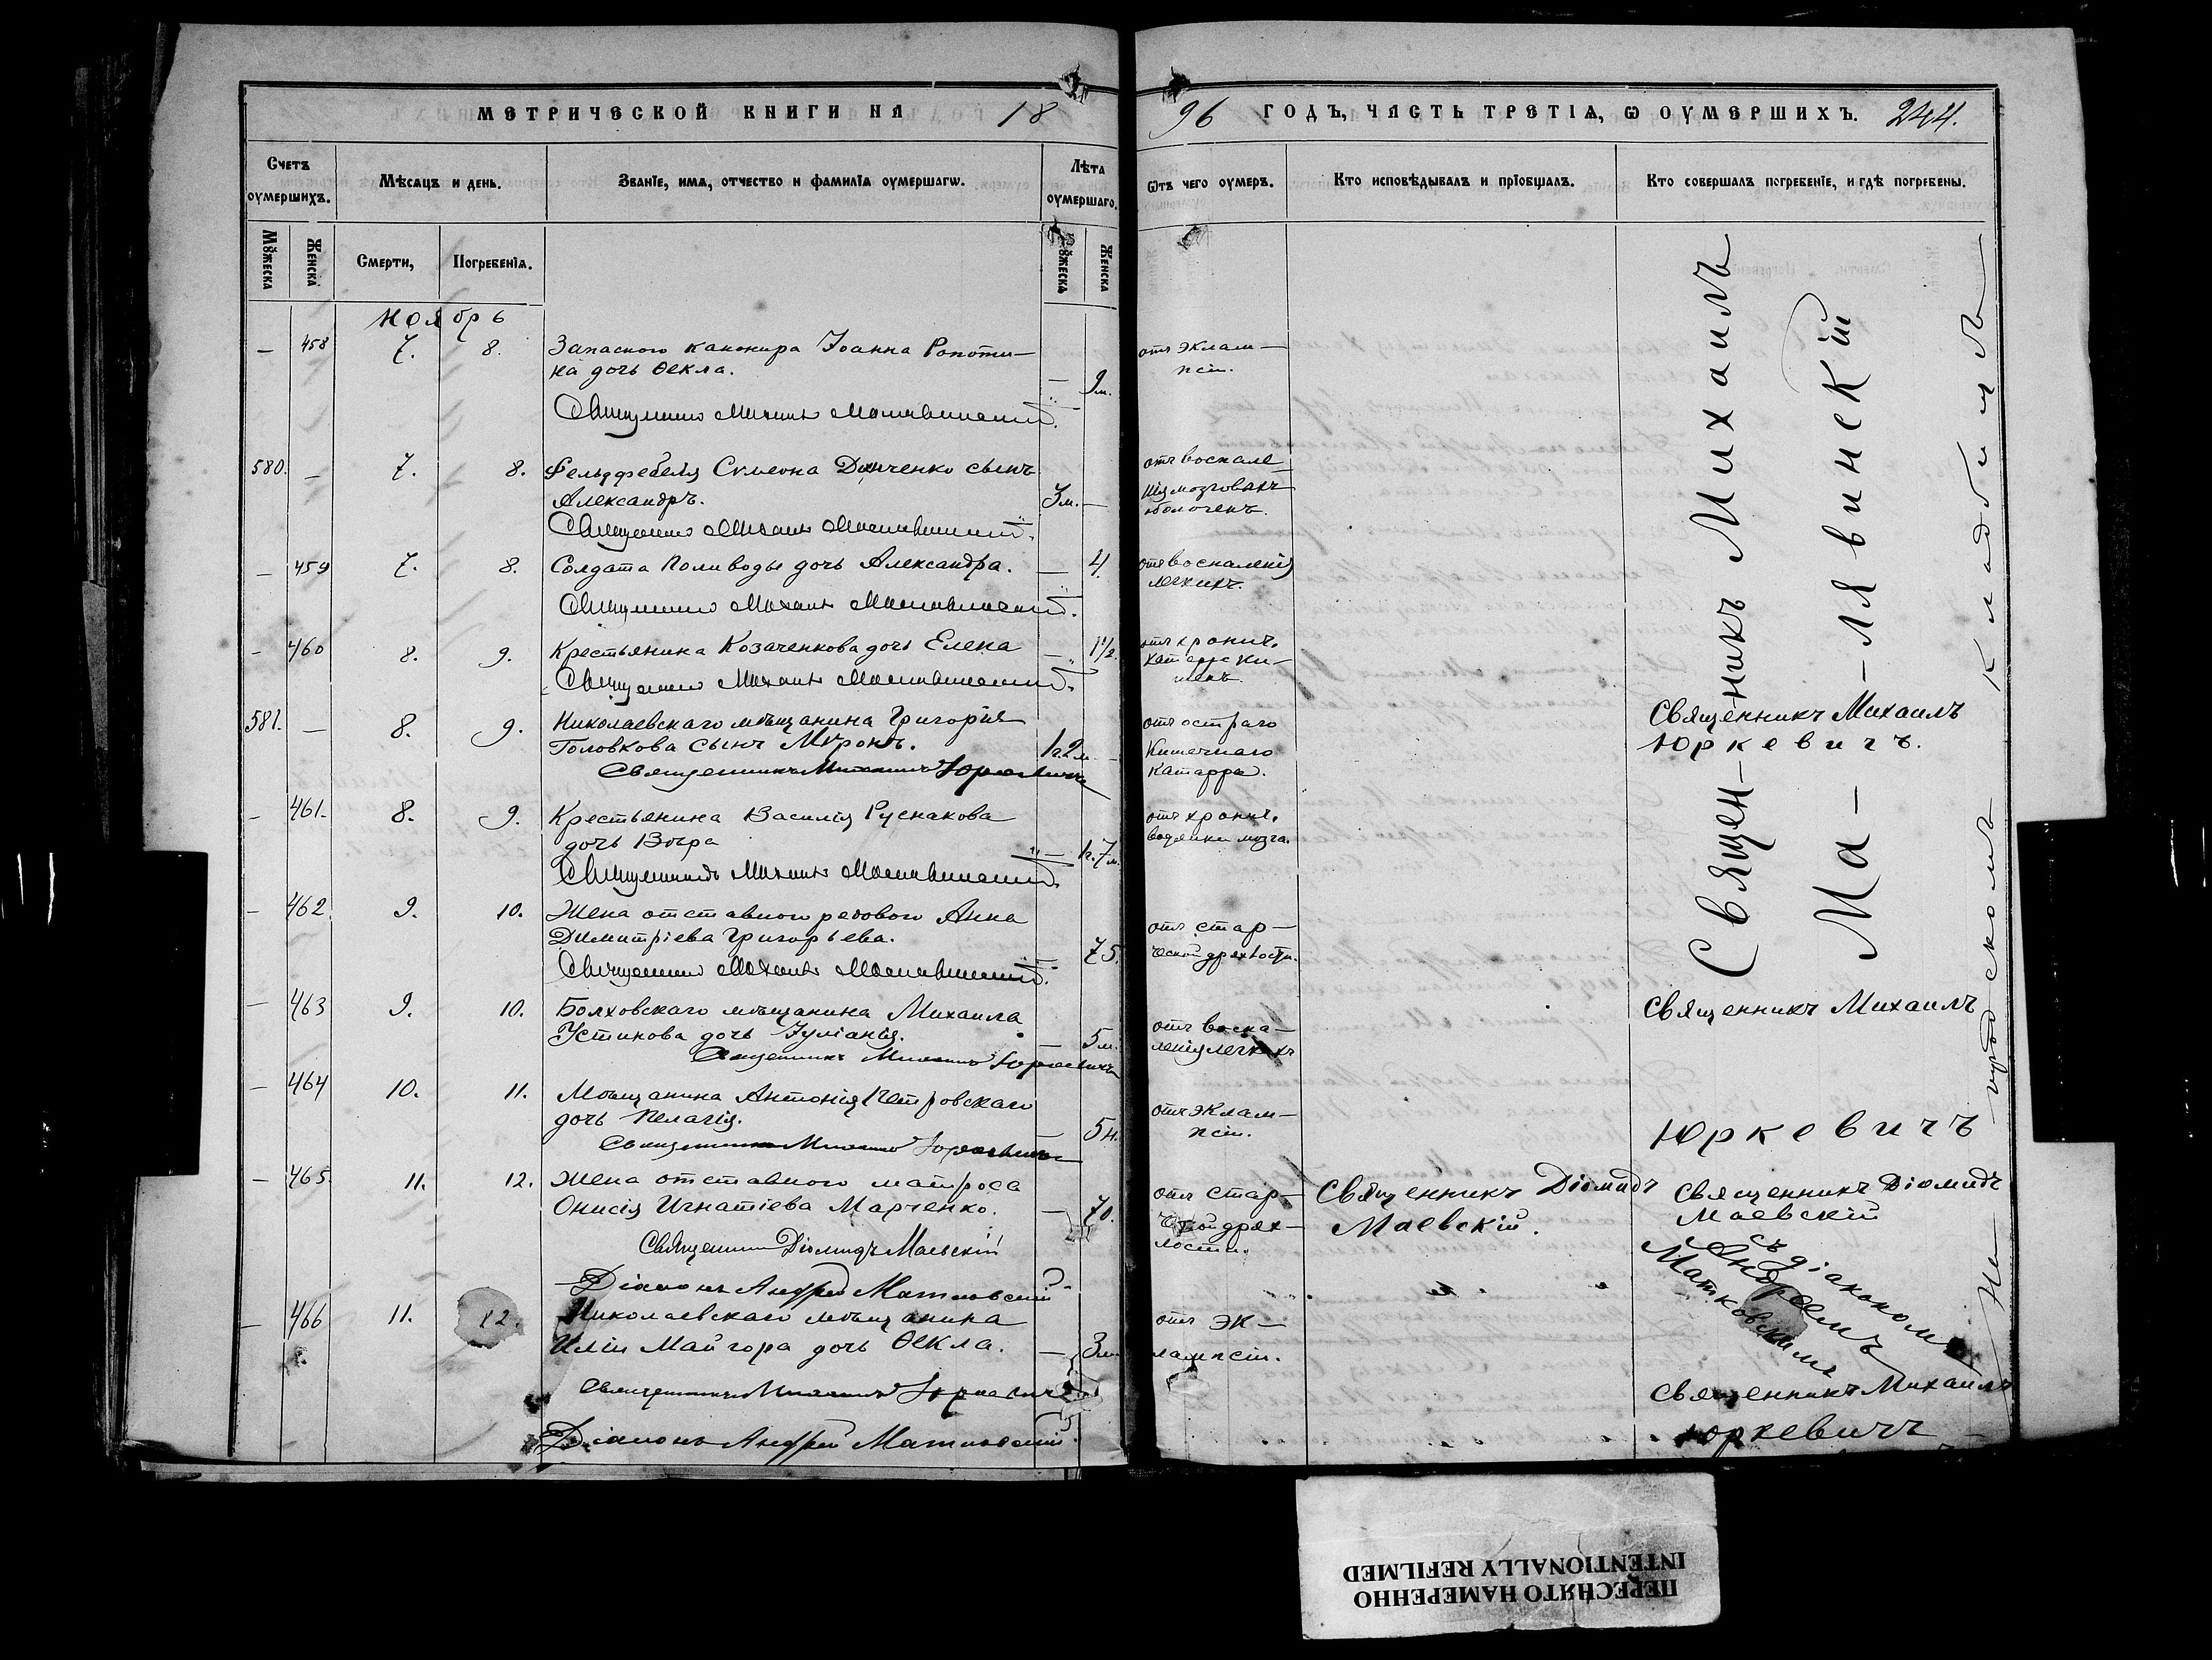 МЕТРИЧЕСКОЙ КНИГИ НА 18
96 ГОДЪ, ЧАСТЬ ТРЕТІѦ, Ѡ ОУМЕРШИХЪ. 244.
Счетъ оумершихъ.
Мѣсѧцъ и день.
Званїе, имѧ, отчество и фамилїѧ оумершагѡ.
Лѣта оумершаго.
Ѿтъ чего оумеръ.
Кто исповѣдывалъ и прїобщалъ.
Кто совершалъ погребенїе, и гдѣ погребены.
Мꙋжеска
Женска
Смерти,
Погребенїѧ.
Мꙋжеска
Женска
Ноябрь
— 458 7. 8. Запаснаго канонира Іоанна Ропоти-
ка дочь Ѳекла. — 9 м.
отъ эклам-
псіи.
Священникъ Михаилъ Малявинскій.
580. — 7. 8. Фельдфебеля Сѵмеона Дѣнченко сынъ
Александръ. 3 м. —
отъ воспале-
нія мозговыхъ
оболочекъ.
Священникъ Михаилъ Малявинскій.
— 459 7. 8. Солдата Поливоды дочь Александра. — 4.
отъ воспаленія
легкихъ.
Священникъ Михаилъ Малявинскій.
— 460 8. 9. Крестьянина Козаченкова дочь Елена — 1½.
отъ хронич.
катарра ки-
шекъ.
Священникъ Михаилъ Малявинскій.
581. — 8. 9. Николаевскаго мѣщанина Григорія
Головкова сынъ Мѵронъ. 1 г. 2 м. —
отъ остраго
кишечнаго
катарра.
Священникъ Михаилъ Юркевичъ
Священникъ Михаилъ
Юркевичъ.
— 461. 8. 9. Крестьянина Василія Руснакова
дочь Вѣра — 1 г. 7 м.
отъ хронич.
водянки мозга.
Священникъ Михаилъ Малявинскій.
— 462 9. 10. Жена отставного рядового Анна
Димитріева Григорьева. — 75.
отъ стар-
ческой дряхлости.
Священникъ Михаилъ Малявинскій.
— 463 9. 10. Болховскаго мѣщанина Михаила
Устинова дочь Іуліанія. — 5 м.
отъ воспа-
ленія легкихъ
Священникъ Михаилъ Юркевичъ
Священникъ Михаилъ
— 464 10. 11. Мѣщанина Антонія Петровскаго
дочь Пелагія. — 5 н.
отъ эклам-
псіи.
Священникъ Михаилъ Юркевичъ
Юркевичъ
— 465. 11. 12. Жена отставного матроса
Онисія Игнатіева Марченко. — 70.
отъ стар-
ческой дрях-
лости.
Священникъ Діомидъ
Маевскій.
Священникъ Діомидъ
Маевскій
съ діакономъ
Андреемъ
Матковскимъ
Священникъ Діомидъ Маевскій
Діаконъ Андрей Матковскій
— 466 11. 12. Николаевскаго мѣщанина
Иліи Майгора дочь Ѳекла. — 3 м.
отъ эк-
лампсіи.
Священникъ Михаилъ Юркевичъ
Діаконъ Андрей Матковскій
Священникъ Михаилъ
Юркевичъ
Священ-никъ Михаилъ
Ма-лявинскій
На городскомъ кладбищѣ
ПЕРЕСНЯТО НАМЕРЕННО
INTENTIONALLY REFILMED